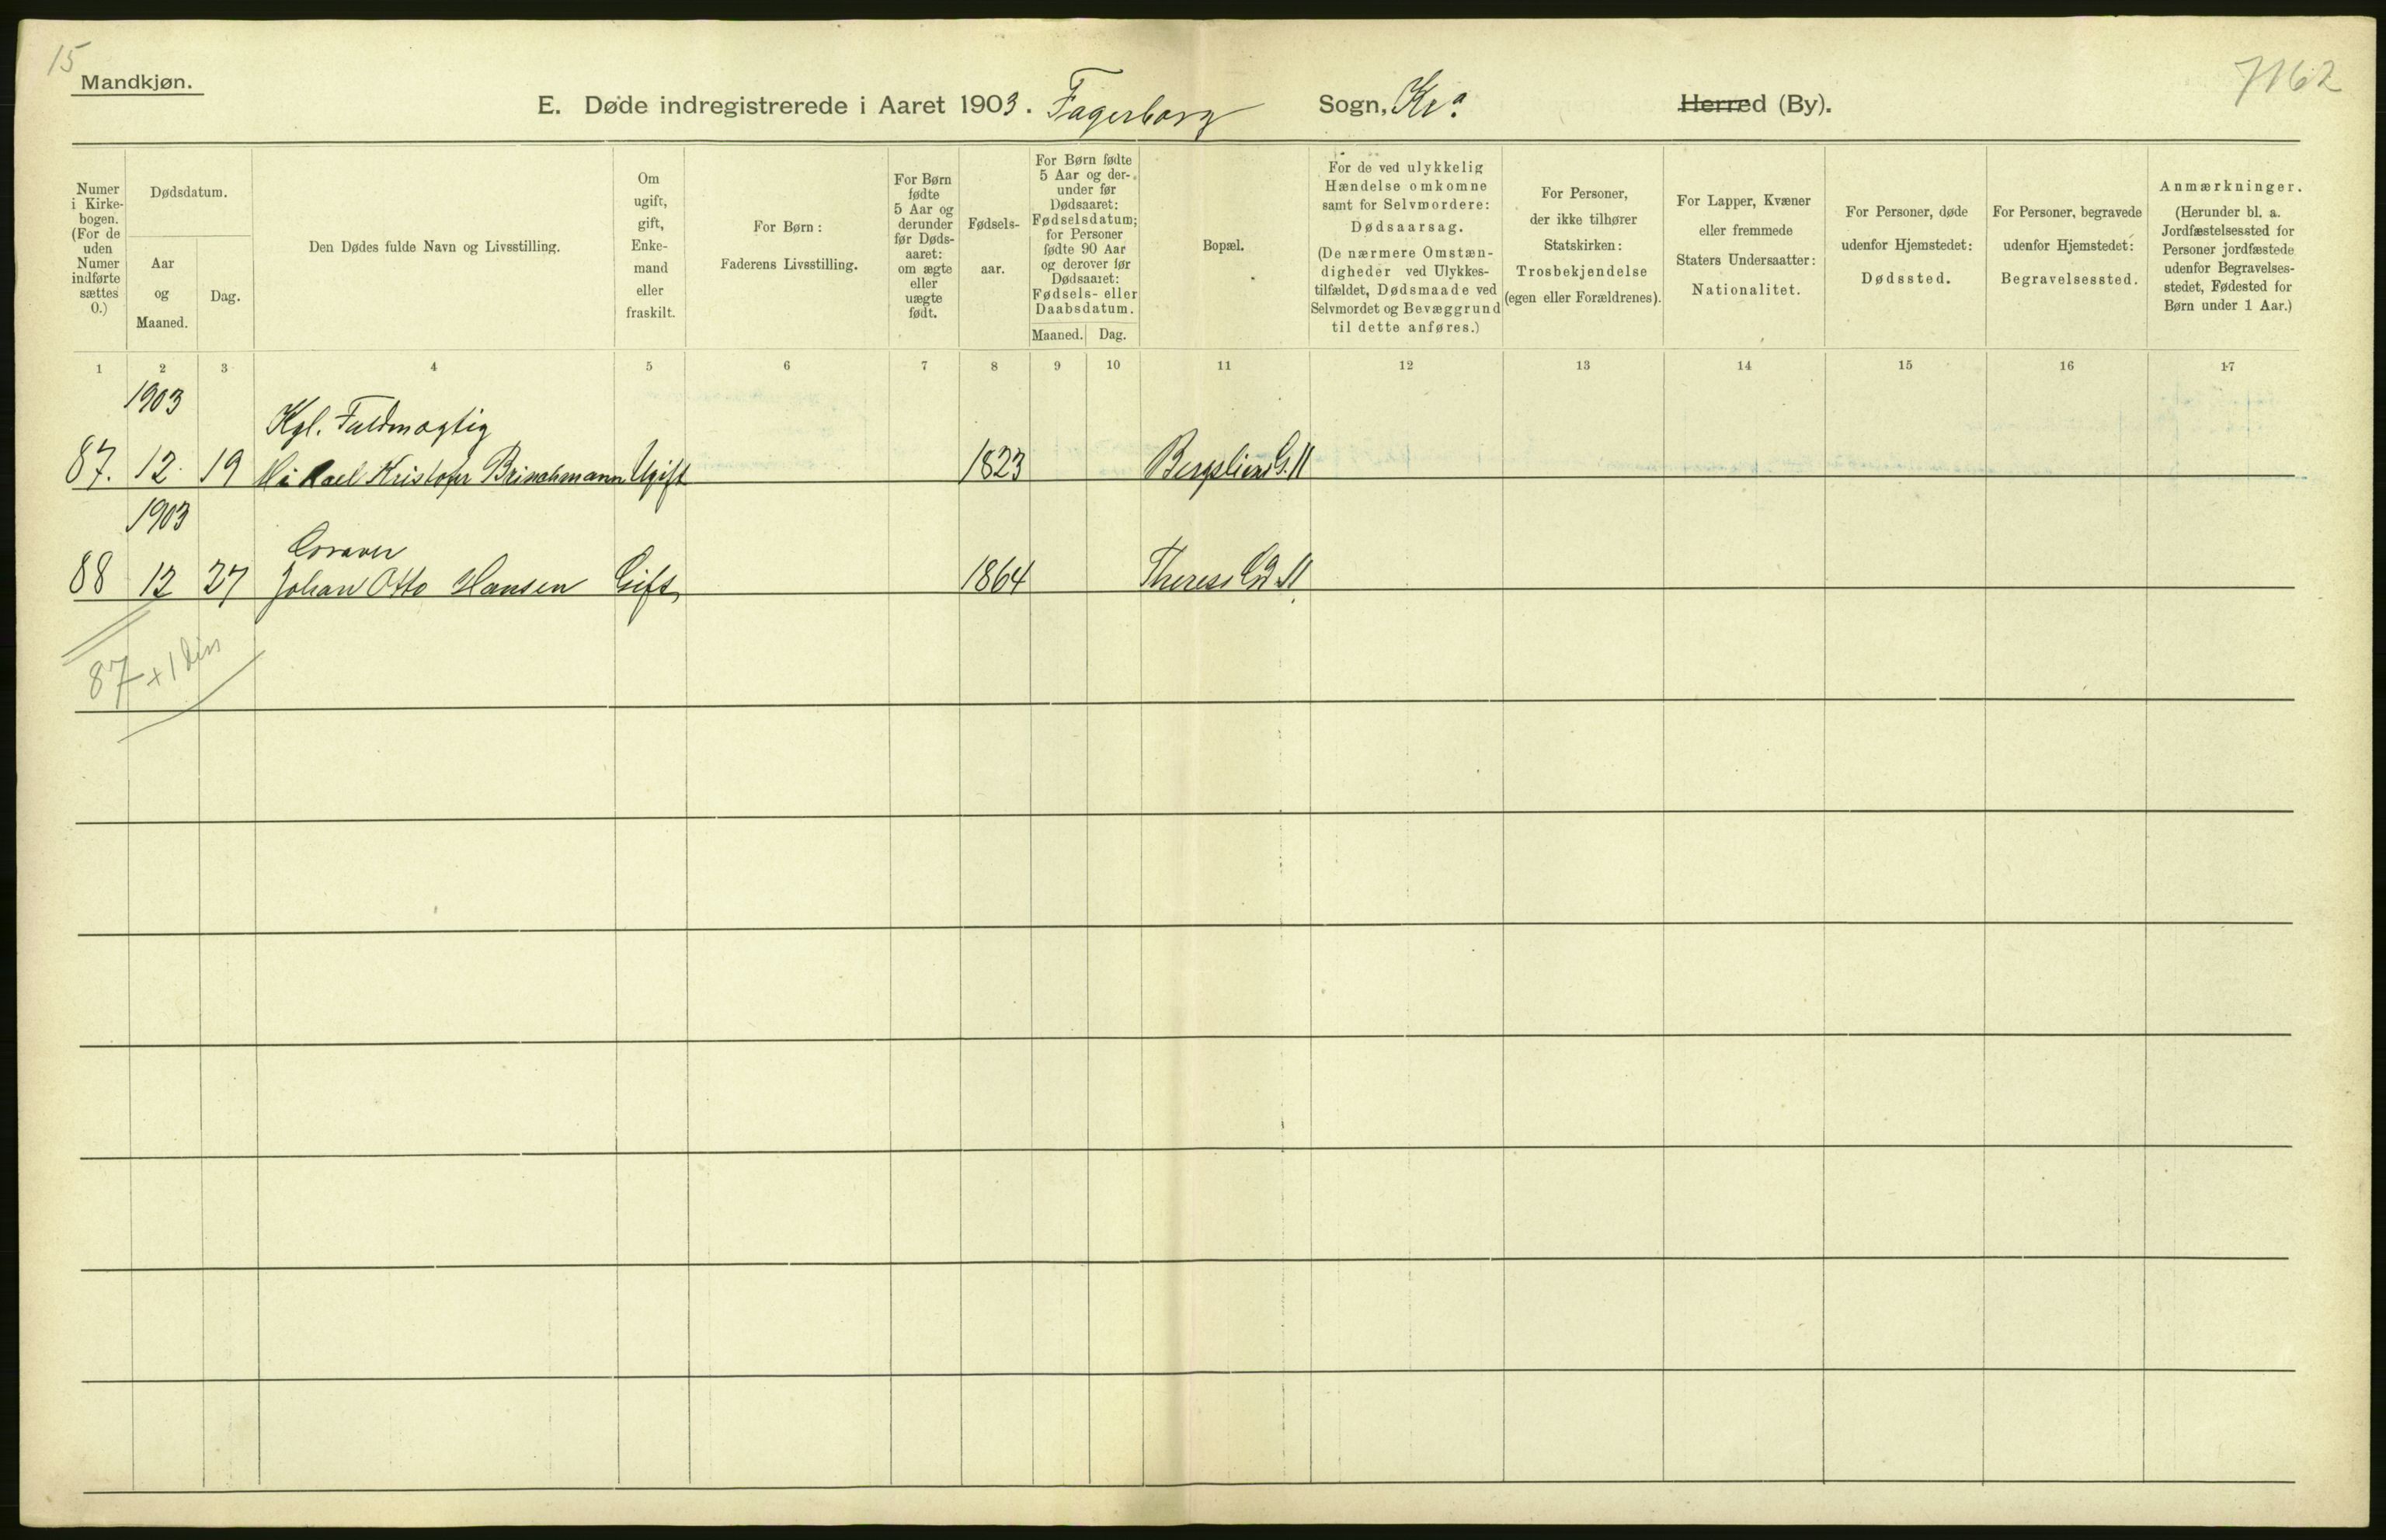 15
Mandkjøn.
7162
E. Døde indregistrerede i Aaret 1903. Fagerborg Sogn, Kra. Herred (By).
Numer i Kirkebogen. (For de uden Numer indførte sættes 0.)
Dødsdatum.
Aar og Maaned.
Dag.
Den Dødes fulde Navn og Livsstilling.
Om ugift, gift, Enkemand eller fraskilt.
For Børn: Faderens Livsstilling.
For Børn fødte 5 Aar og derunder før Dødsaaret: om ægte eller uægte født.
Fødselsaar.
For Børn fødte 5 Aar og derunder før Dødsaaret: Fødselsdatum; for Personer fødte 90 Aar og derover før Dødsaaret: Fødsels- eller Daabsdatum.
Maaned. Dag.
Bopæl.
For de ved ulykkelig Hændelse omkomne samt for Selvmordere: Dødsaarsag. (De nærmere Omstændigheder ved Ulykkestilfældet, Dødsmaade ved Selvmordet og Bevæggrund til dette anføres.)
For Personer, der ikke tilhører Statskirken: Trosbekjendelse (egen eller Forældrenes).
For Lapper, Kvæner eller fremmede Staters Undersaatter: Nationalitet.
For Personer, døde udenfor Hjemstedet: Dødssted.
For Personer, begravede udenfor Hjemstedet: Begravelsessted.
Anmærkninger. (Herunder bl. a. Jordfæstelsessted for Personer jordfæstede udenfor Begravelsesstedet, Fødested for Børn under 1 Aar.)
1 2 3 4 5 6 7 8 9 10 11 12 13 14 15 16 17
1903
Kgl. Fuldmægtig
87. 12. 19 Mikael Kristofer Brinchmann Ugift 1823 Bergsliens G. 11
1903
Graver
88 12 27 Johan Otto Hansen Gift 1864 Theress Gd. 11
87 + 1